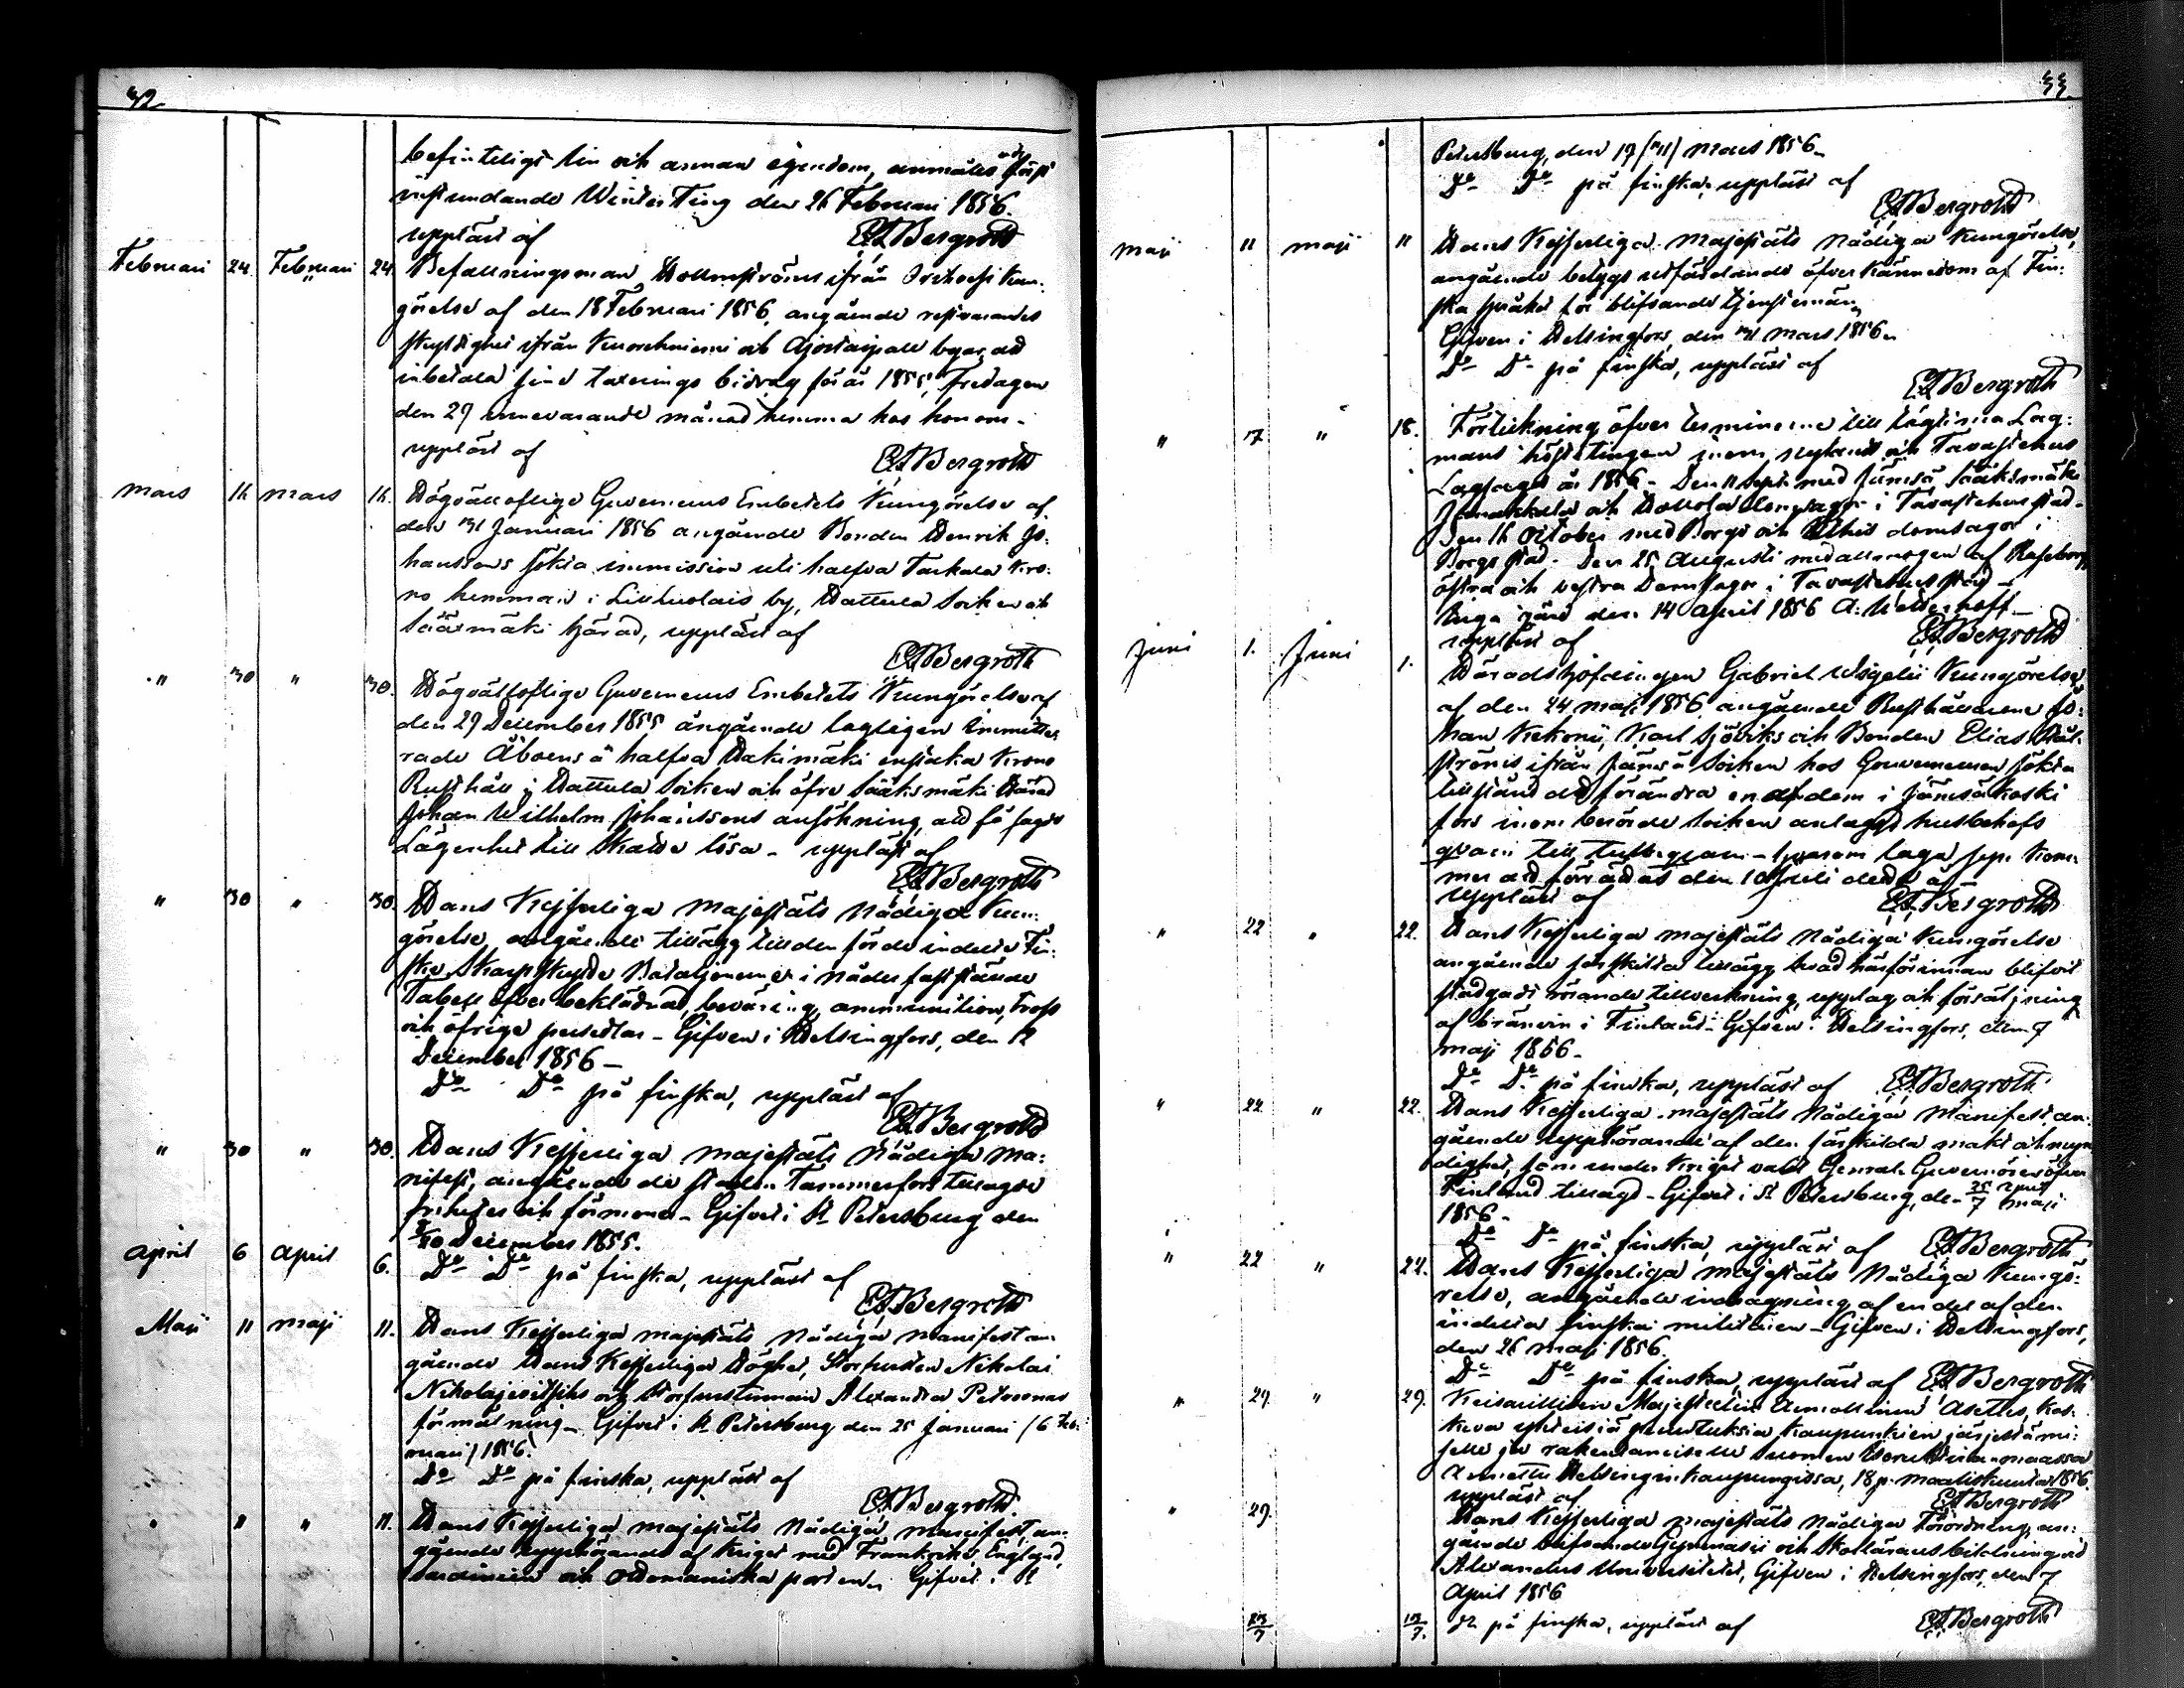 32
befinteligt lin och annan egendom, anmäles vid först
instundande Winter Ting den 26 Februari 1856.
uppläst af
EA Bergroth
Februari 24 Februari 24. Befallningsman Hollmströms ifrån Orihvesi Kun-
görelse af den 18 Februari 1856, angående restvarandes
skyldighet ifrån Kuorehniemi och byar, att
inbetala sina taxerings bidrag för år 1855, Fredagen
den 29 innevarande månad hemma hos honom.
uppläst af
EA Bergroth
Mars 16 Mars 16. Högvälloflige Guverneurs Embetets Kungörelse af
den 31 Januari 1856 angående Bonden Henrik Jo-
hanssons sökta immission uti halfva Tarkala kro-
no hemman i by, Hattula Socken och
Sääxmäki härad, uppläst af
EA Bergroth
" 30 " 30. Högvälloflige Guverneurs Embetets Kungörelse af
den 29 December 1855 angående lagligen immitte-
rade Åboens å halfva Hakimäki enstaka Krono
Rusthåll i Hattula Socken och öfre Sääksmäki Härad
Johan Wilhelm Johanssons ansökning, att få sagde
Lägenhet till skatte lösa - uppläst af
EA Bergroth
" 30 " 30. Hans Kejserliga Majestäts Nådiga Kun-
görelse, angående tillägg till den för de indelte Fin-
ska Skarpskytte Bataljonerne i nåder fastställde
Tabell öfver beklädnad, beväring, ammunition, tross
och öfrige persedlar - Gifven i Helsingfors, den 12
December 1856 -
Do Do på finska, uppläst af
EA Bergroth
" 30 " 30. Hans Kejserliga Majestäts Nådiga Ma-
nifest, angående de staden Tammerfors tillagde
friheter och förmoner - Gifvet i St Petersburg den
8/20 December 1855.
April 6 April 6. Do Do på finska, uppläst af
EA Bergroth
Maji 11 Maji 11. Hans Kejserliga Majestäts Nådiga Manifest an-
gående Hans Kejserliga Höghet, Storfursten Nikolai
Nikolajevitschs och Storfurstinnan Alexandra Petrovnas
förmälning - Gifvet i St Petersburg den 25 Januari (6 Feb-
ruari) 1856.
Do Do på finska, uppläst af
EA Bergroth
" 11 " 11. Hans Kejserliga Majestäts Nådiga Manifest, an-
gående upphörande af kriget med Frankrike, England,
Sardinien och Ottomaniska porten, Gifvet i St
33
Petersburg, den 19 (31) Mars 1856.
Do Do på finska, uppläst af
EA Bergroth
Maji 11 Maji 11 Hans Kejserliga Majestäts Nådiga Kungörelse,
angående betygs utfärdande öfver kännedom af Fin-
ska språket för blifvande tjenstemän,
Gifven i Helsingfors, den 31 Mars 1856.
Do Do på finska, uppläst af
EA Bergroth
" " 18. Förteckning öfver terminerne till lagtima Lag-
mans höstetingen inom Nylands och Tavastehus
Lagsaga år 1856 - Den 11 Sept: med Jämsä Sääksmäki
Janakkala och Hollola domsagor i Tavastehus stad -
Den 16 October med Borgå och domsagor i
Borgå stad - Den 25 Augusti med allmogen af Raseborgs
östra och vestra Domsagor i Tavastehus stad -
Inga gård den 14 April 1856 A:
uppläst af
EA Bergroth
Juni 1. Juni 1. Häradshöfdingen Gabriel Wigelii Kungörelse,
af den 24 Maji 1856 angående Rusthållarene Jo-
han Kekoni, Karl Sjöviks och Bonden Elias Häll-
ströms ifrån Jämsä Socken hos Gouverneuren sökta
tillstånd att förändra en af dem i Jämsänkoski
fors inom berörde Socken anlagd husbehofs
qvarn till tullqvarn - hvarom laga syn kom-
mer att förrättas den 10 Juli detta år
Uppläst af
EA Bergroth
" 22 " 22. Hans Kejserliga Majestäts Nådiga Kungörelse
angående särskilta tillägg hvad härförinnan blifvit
stadgadt rörande tillverkning, upplag och försäljning
af bränvin i Finland - Gifven i Helsingfors, den 7
Maji 1856.
Do Do på finska, uppläst af EA Bergroth
" 22 " 22. Hans Kejserliga Majestäts Nådiga Manifest, an-
gående upphörande af den särskilda makt och myn-
dighet, som under kriget varit General-Guvernören öfver
Finland tillagd - Gifvet i St Petersburg, den 25 April/7 Maji
1856.
Do Do på finska, uppläst af EA Bergroth
" 22 " 22. Hans Kejserliga Majestäts Nådiga Kungö-
relse, angående indragning af en del af den
indelta finska militären - Gifven i Helsingfors,
den 26 Maji 1856.
Do Do på finska, uppläst af EA Bergroth
" 29. " 29. Keisarillisen Majesteetin Armollinen Asetus, kos-
keva yhteisiä perustuksia kaupunkien järjestämi-
selle ja rakentamiselle Suomen Isoruhtinanmaassa
Annettu Helsingin kaupungissa, 18 p. Maaliskuuta 1856.
uppläst af
EA Bergroth
" 29. Hans Kejserliga Majestäts Nådiga Förordning, an-
gående blifvande Gymnasii och Skollärares bildning vid
Alexanders Universitetet, Gifven i Helsingfors, den 7
April 1856
13/7 13/7. do på finska, uppläst af
EA Bergroth